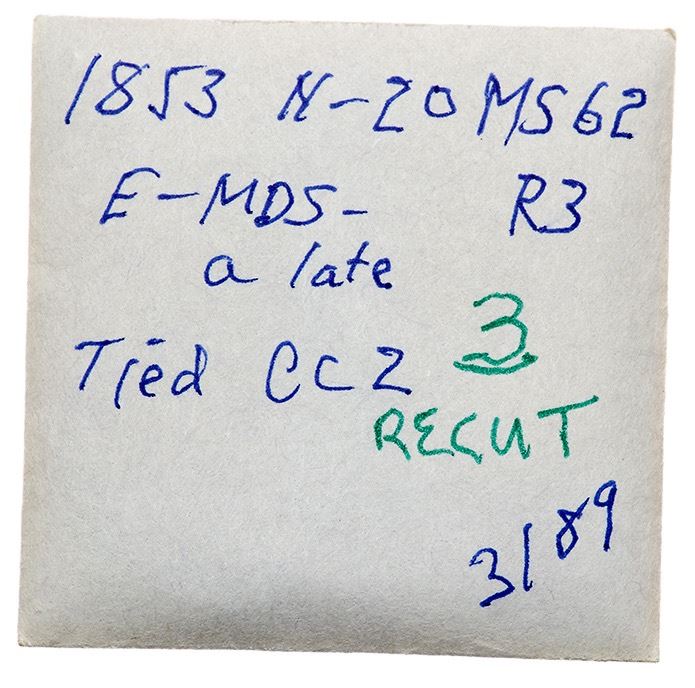 1853 N-20 MS62
E-MDS- R3
a late
Tied CC2 3
RECUT
3/89